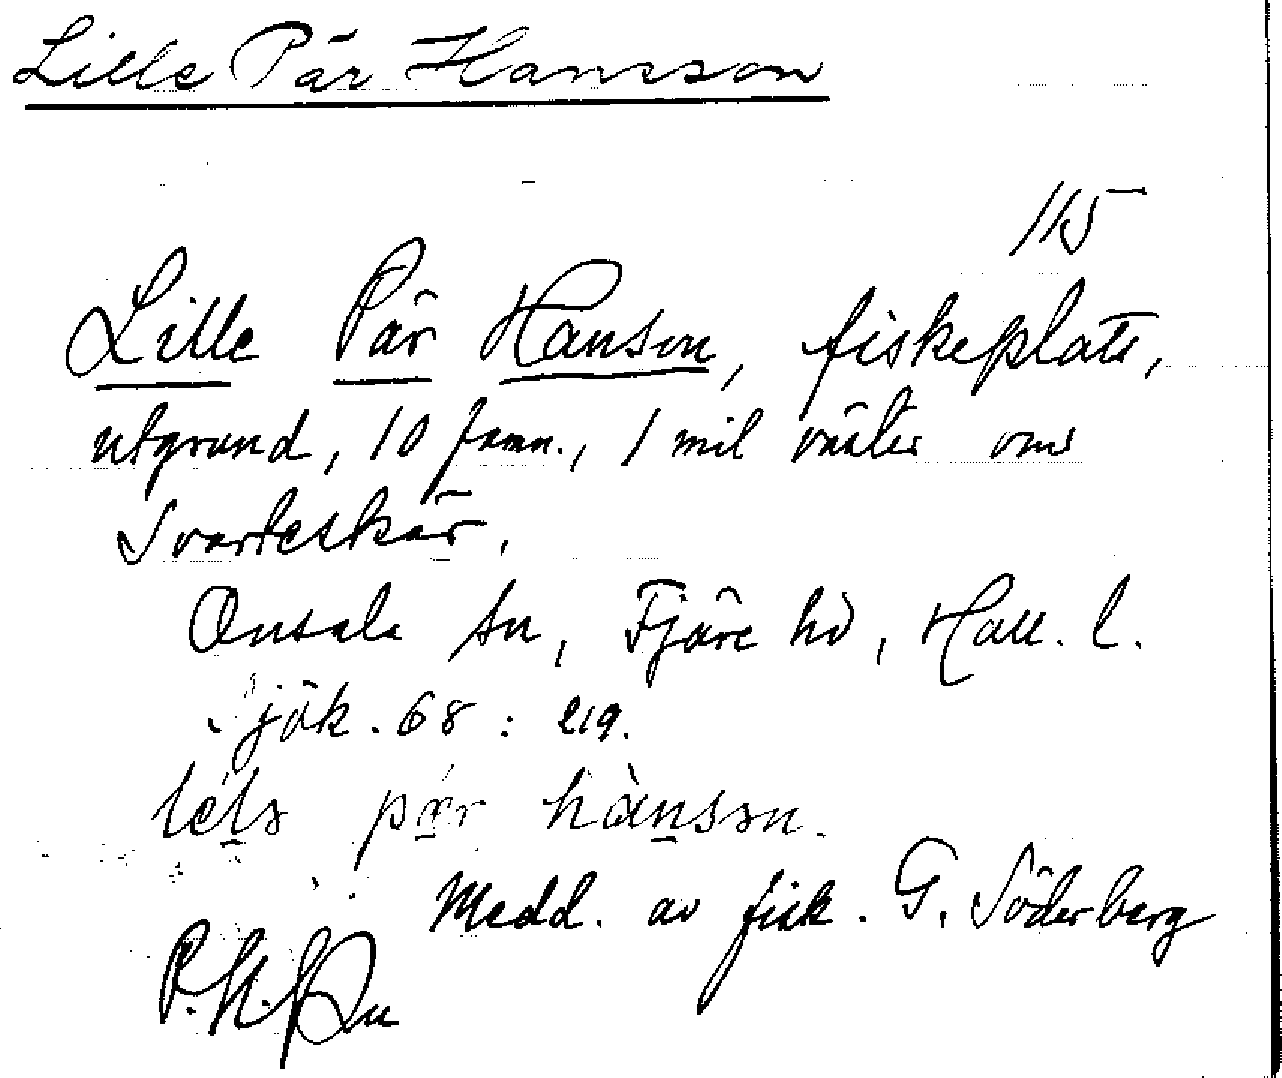 Lille Pär Hansson
115
Lille Pär Hanson, fiskeplats,
utgrund, 10 famn., 1 mil väster om
Svarteskär.
Onsala sn, Fjäre hd, Hall. l.
sjök. 68 : 219.
hànson.
Medd. av fisk. G. Söderberg